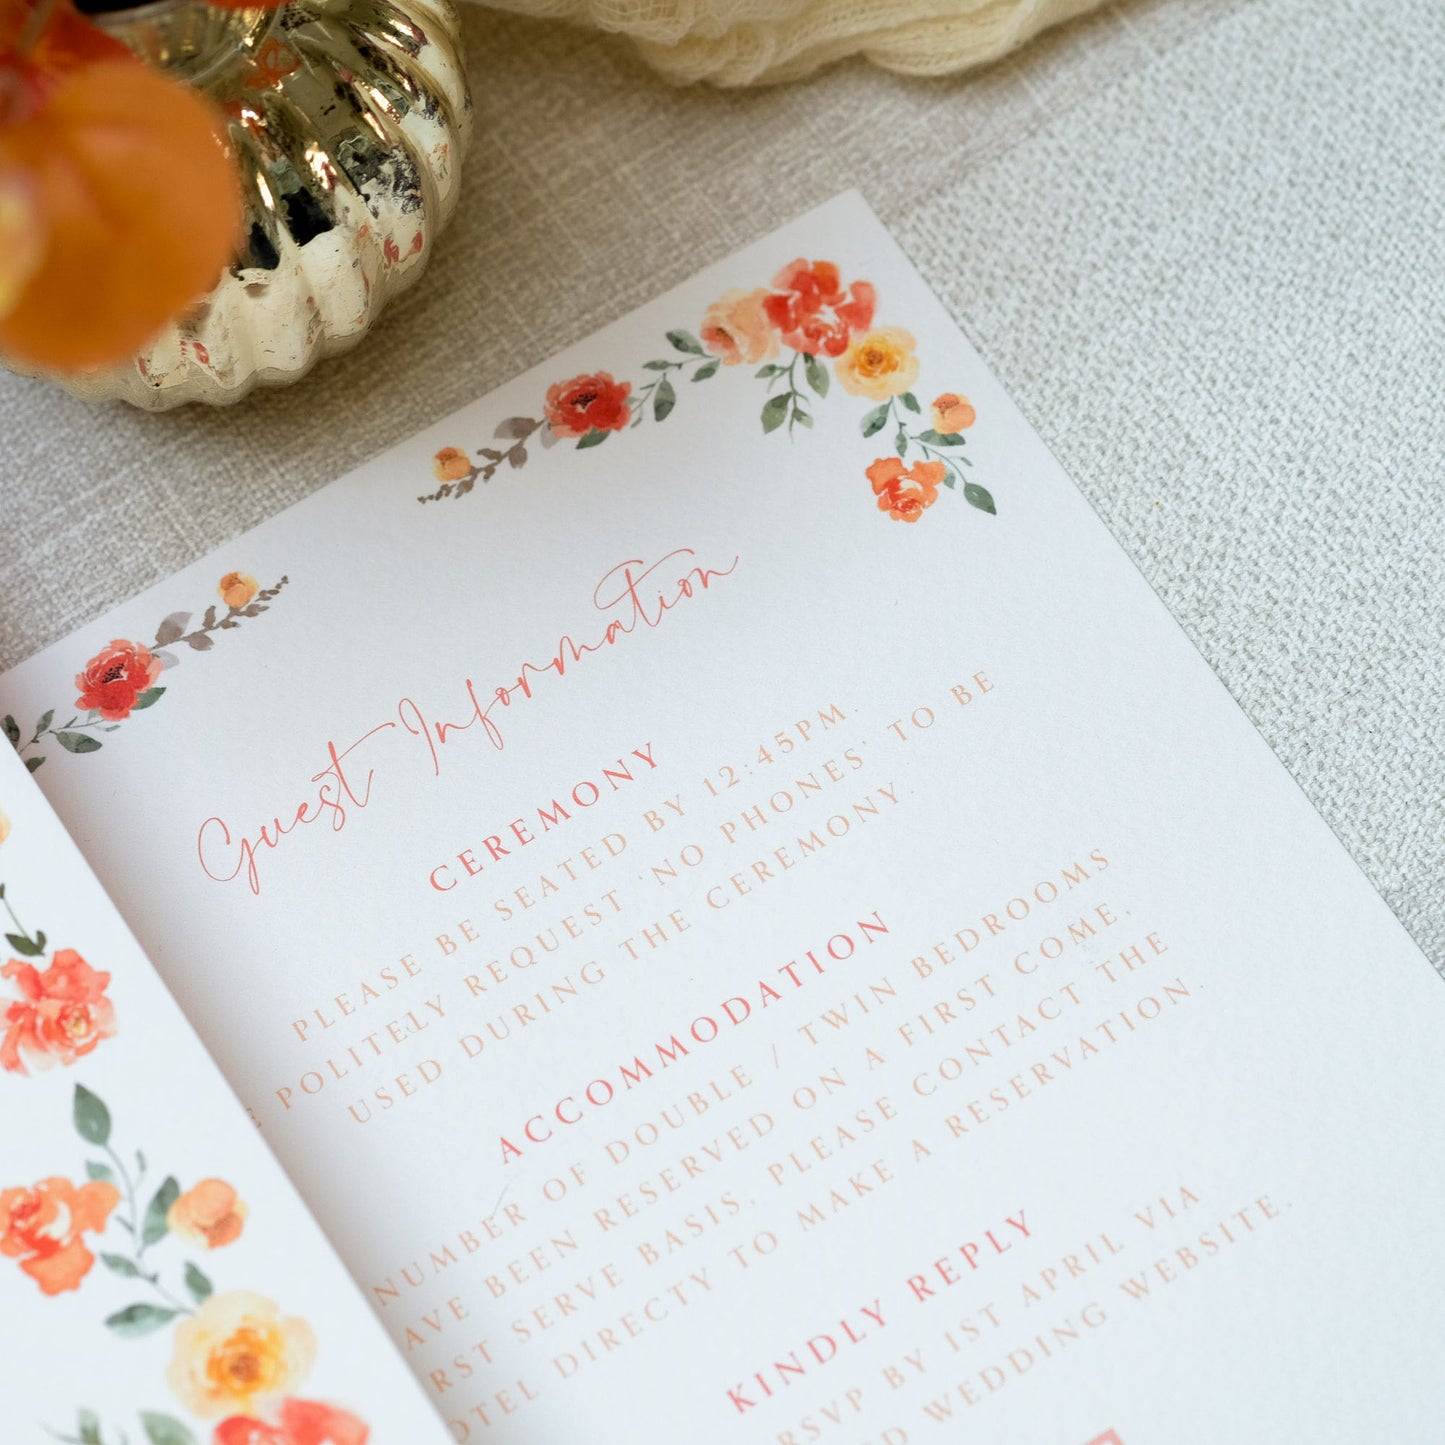 Guest Information
CEREMONY
PLEASE BE SEATED BY 12:45PM.
POLITELY REQUEST 'NO PHONES' TO BE
USED DURING THE CEREMONY.
ACCOMMODATION
NUMBER OF DOUBLE / TWIN BEDROOMS
AVE BEEN RESERVED ON A FIRST COME,
RST SERVE BASIS. PLEASE CONTACT THE
OTEL DIRECTY TO MAKE A RESERVATION.
KINDLY REPLY
RSVP BY 1ST APRIL VIA
WEDDING WEBSITE.